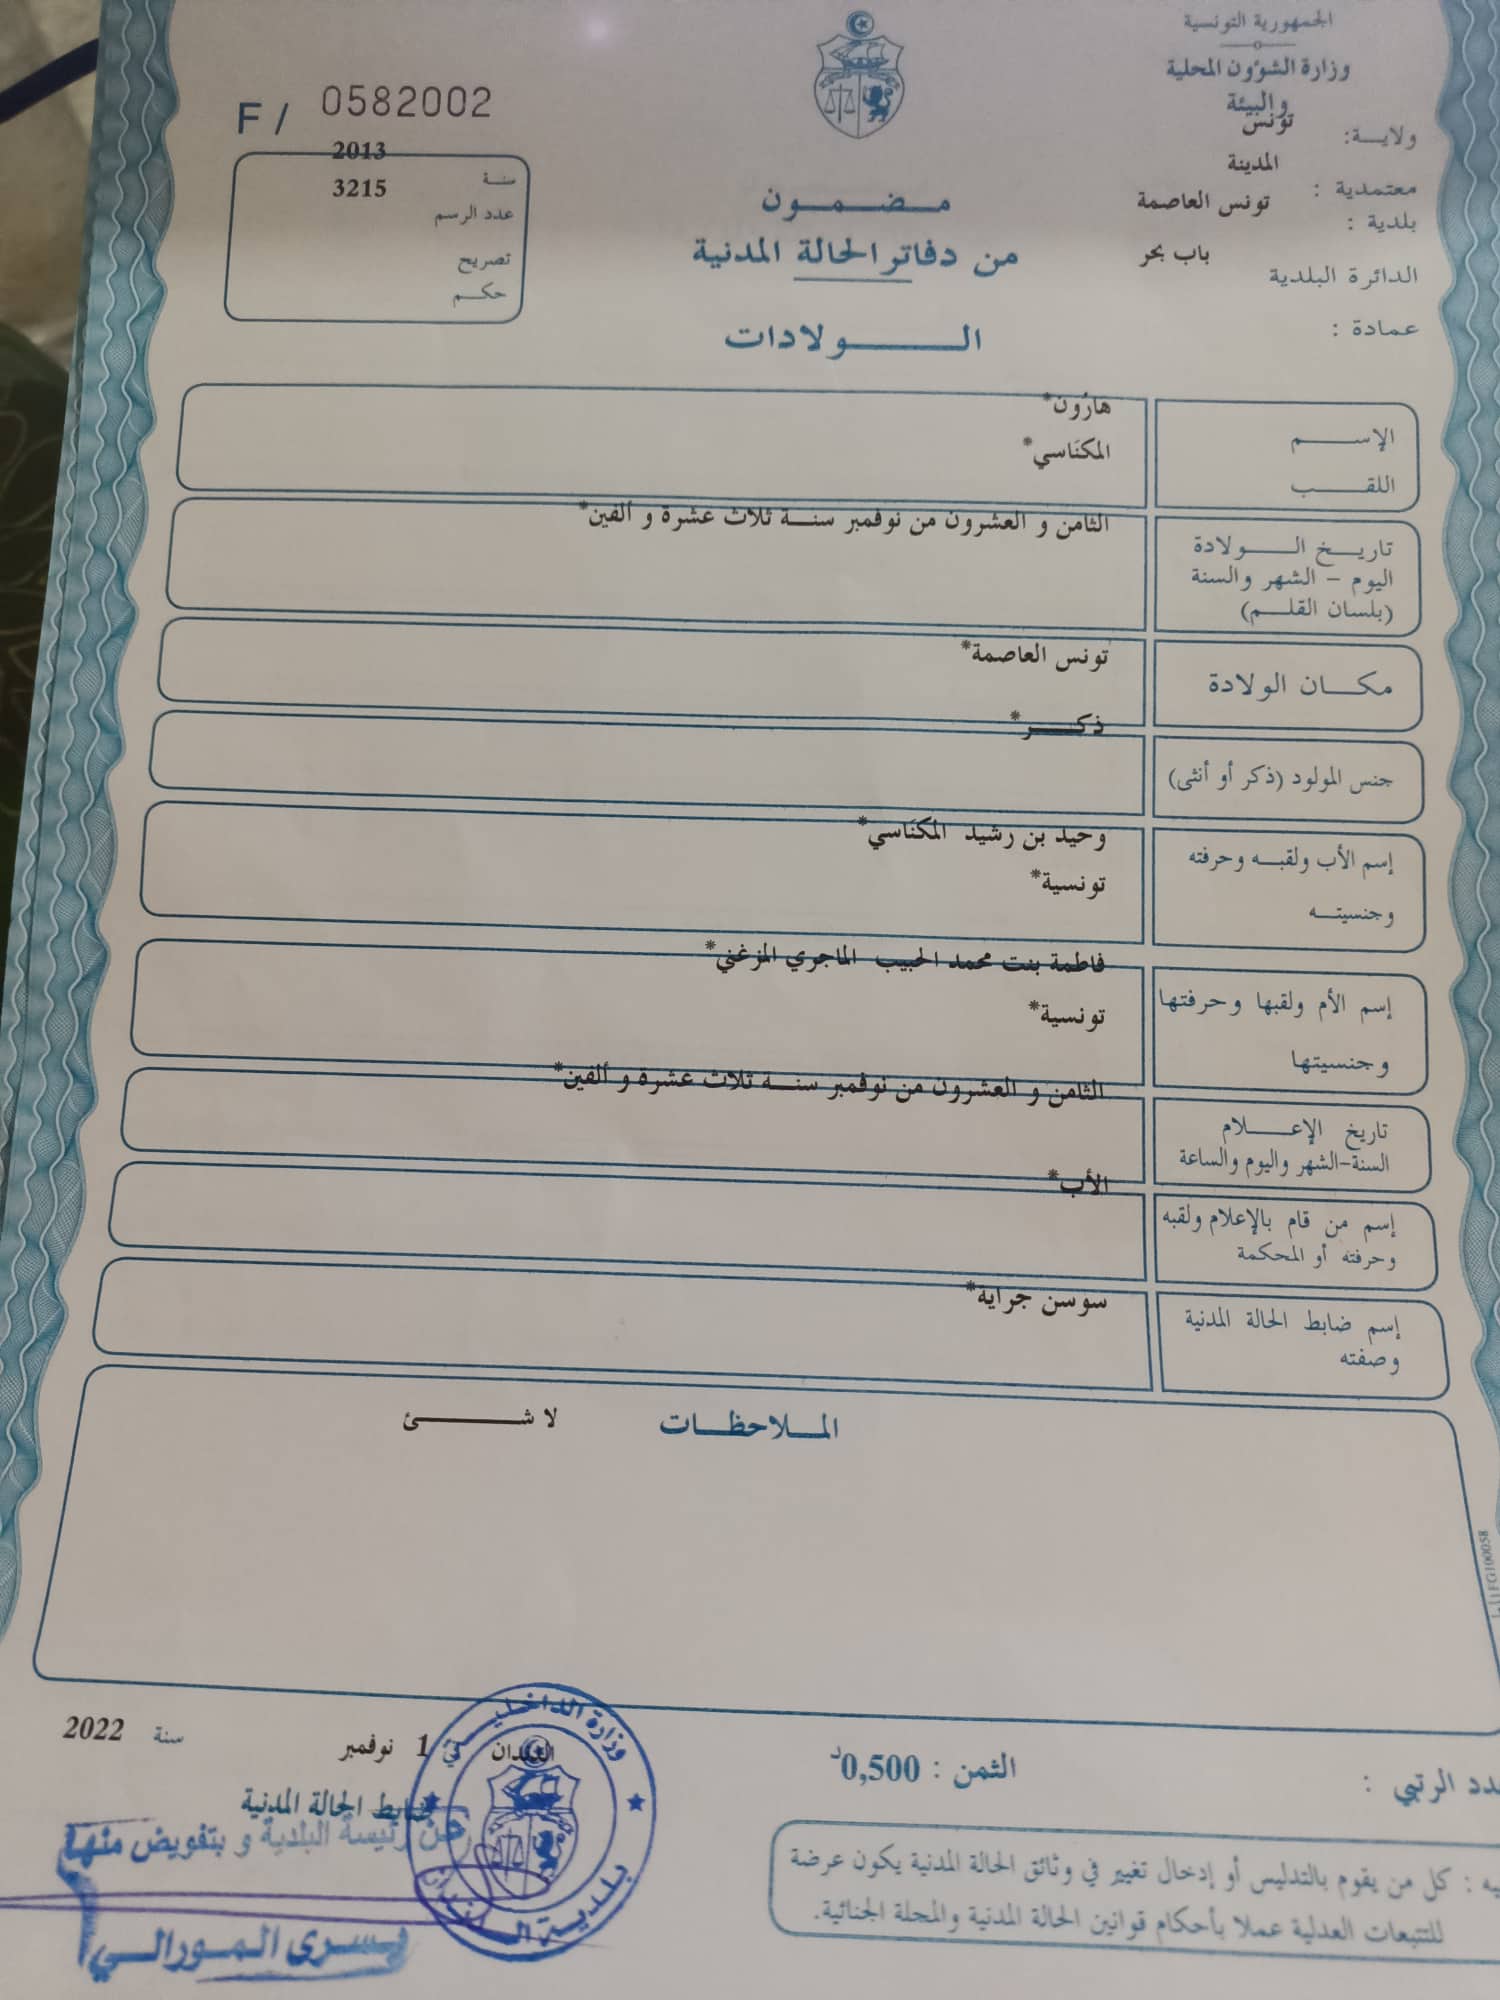 الجمهورية التونسية
وزارة الشؤون المحلية
والبيئة
ولايــة: تونس
معتمدية : المدينة
بلدية : تونس العاصمة
الدائرة البلدية باب بحر
عمادة :
F / 0582002
سنـة 2013
عدد الرسم 3215
تصريح
حكـم
مـضـمـون
من دفاتر الحالة المدنية
الـــولادات
الإســـم هارون*
اللقـــب المكناسي*
تاريـخ الــولادة
اليوم – الشهر والسنة
(بلسان القلـم)
الثامن و العشرون من نوفمبر سنـة ثلاث عشرة و ألفين*
مكـان الولادة تونس العاصمة*
جنس المولود (ذكر أو أنثى) ذكـــر*
إسم الأب ولقبـه وحرفته
وجنسيتـه
وحيد بن رشيد المكناسي*
تونسية*
إسم الأم ولقبها وحرفتها
وجنسيتها
فاطمة بنت محمد الحبيب الماجري المزغني*
تونسية*
تاريخ الإعـــلام
السنة-الشهر واليوم والساعة
الثامن و العشرون من نوفمبر سنـة ثلاث عشرة و ألفين*
إسم من قام بالإعلام ولقبه
وحرفته أو المحكمة
الأب*
إسم ضابط الحالة المدنية
وصفته
سوسن جراية*
المـلاحظـات لا شـــئ
في 1 نوفمبر سنة 2022
ضابط الحالة المدنية
عن رئيسة البلدية و بتفويض منها
يسرى المورالي
وزارة الداخليـة
بلديـة
الثمن : 0,500د
الرتبي :
: كل من يقوم بالتدليس أو إدخال تغيير في وثائق الحالة المدنية يكون عرضة
للتتبعات العدلية عملا بأحكام قوانين الحالة المدنية والمجلة الجنائية.